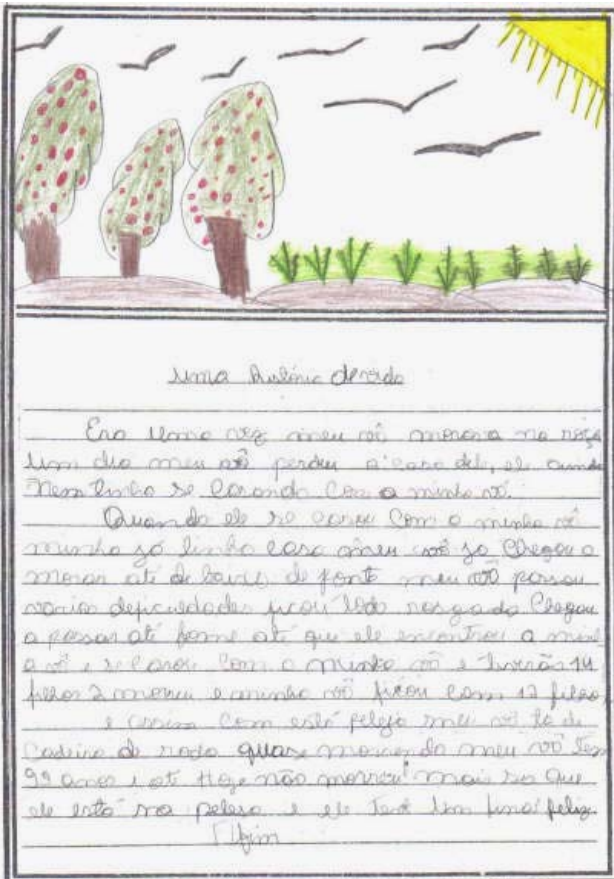 Uma história de vida
Era uma vez meu vô morava na roça
um dia meu vô perdeu a casa dele, ele ainda
nem tinha se casando com a minha vó.
Quando ele se casou com a minha vó
minha já tinha casa meu vô já chegou a
morar até de baixo de ponte meu vô passou
varias deficuldades ficou todo rasgado chegou
a passar até fome até que ele encontrou a minh
a vó e se casou com a minha vó e tiverão 14
filhos 2 morreu e minha vó ficou com 12 filho
e assim com está peleja meu vô ta de
cadeira de roda quase morrendo meu vô tem
99 anos e até hoje não morreu mais so que
ele está na peleja e ele terá um final feliz
fim